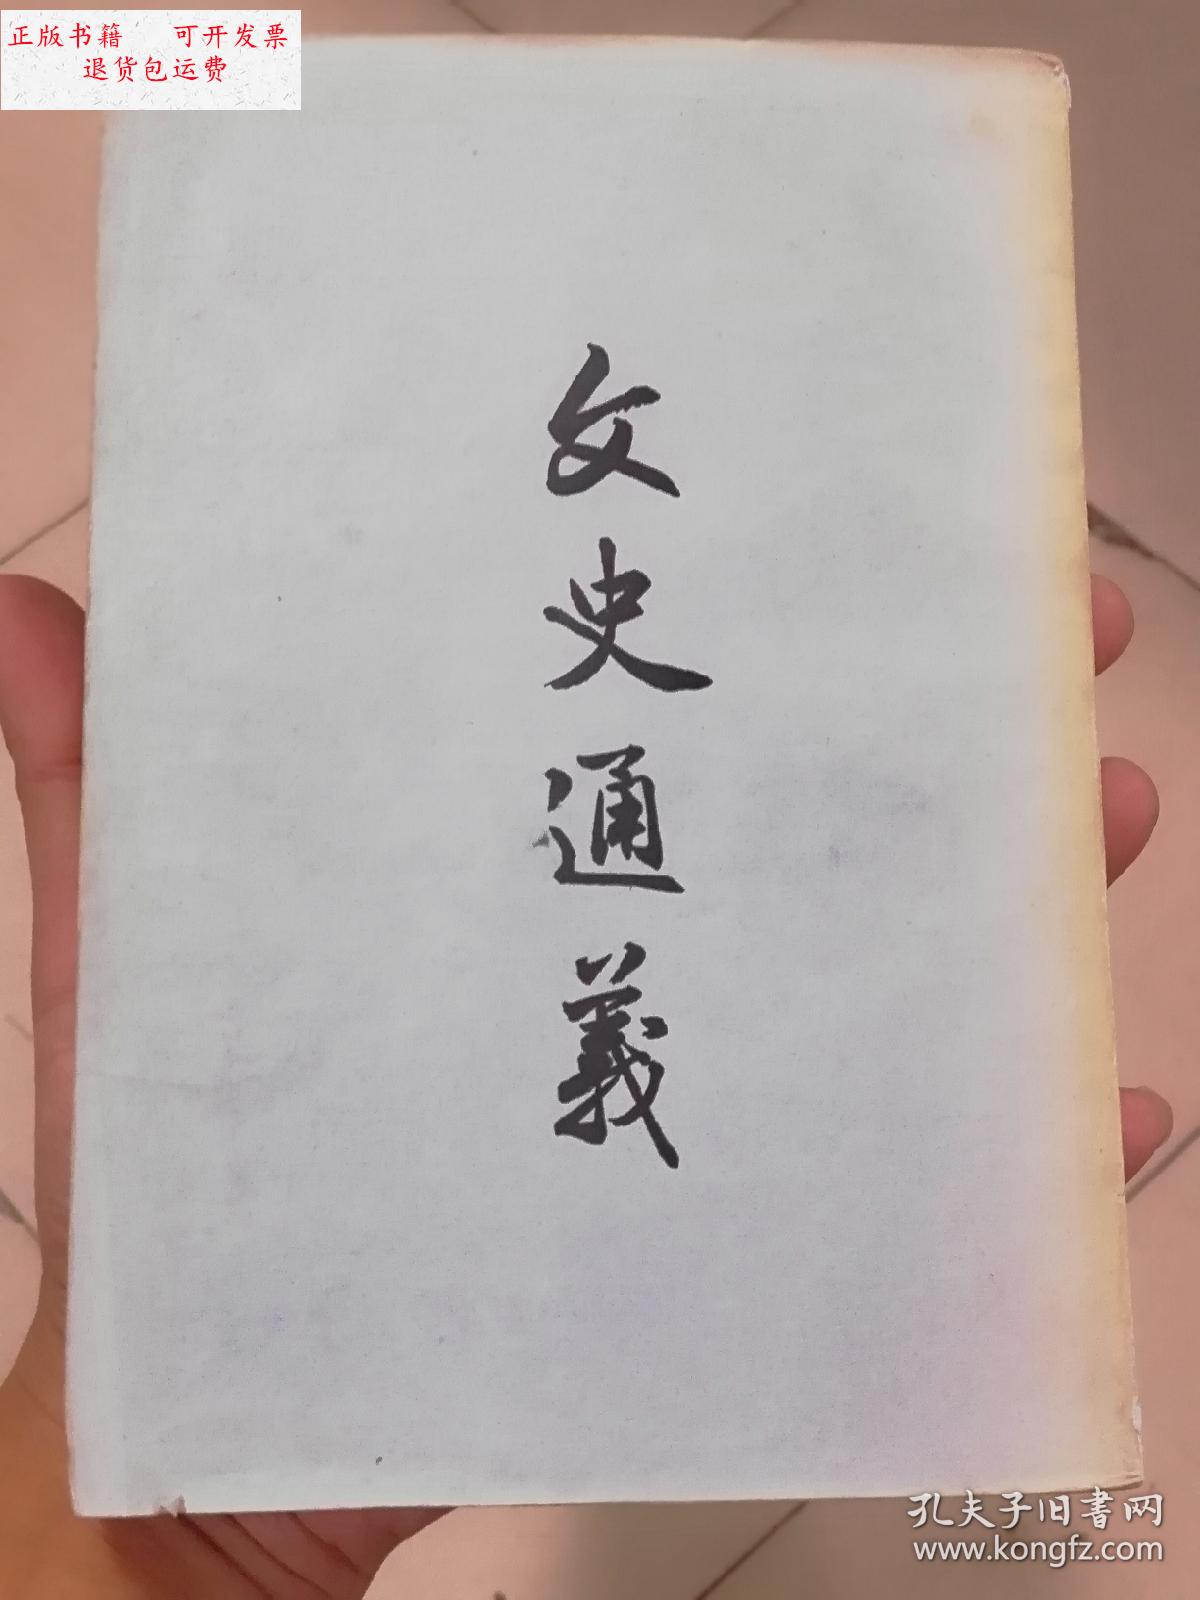 正版书籍 可开发票
退货包运费
文史通義
孔夫子旧书网
www.kongfz.com